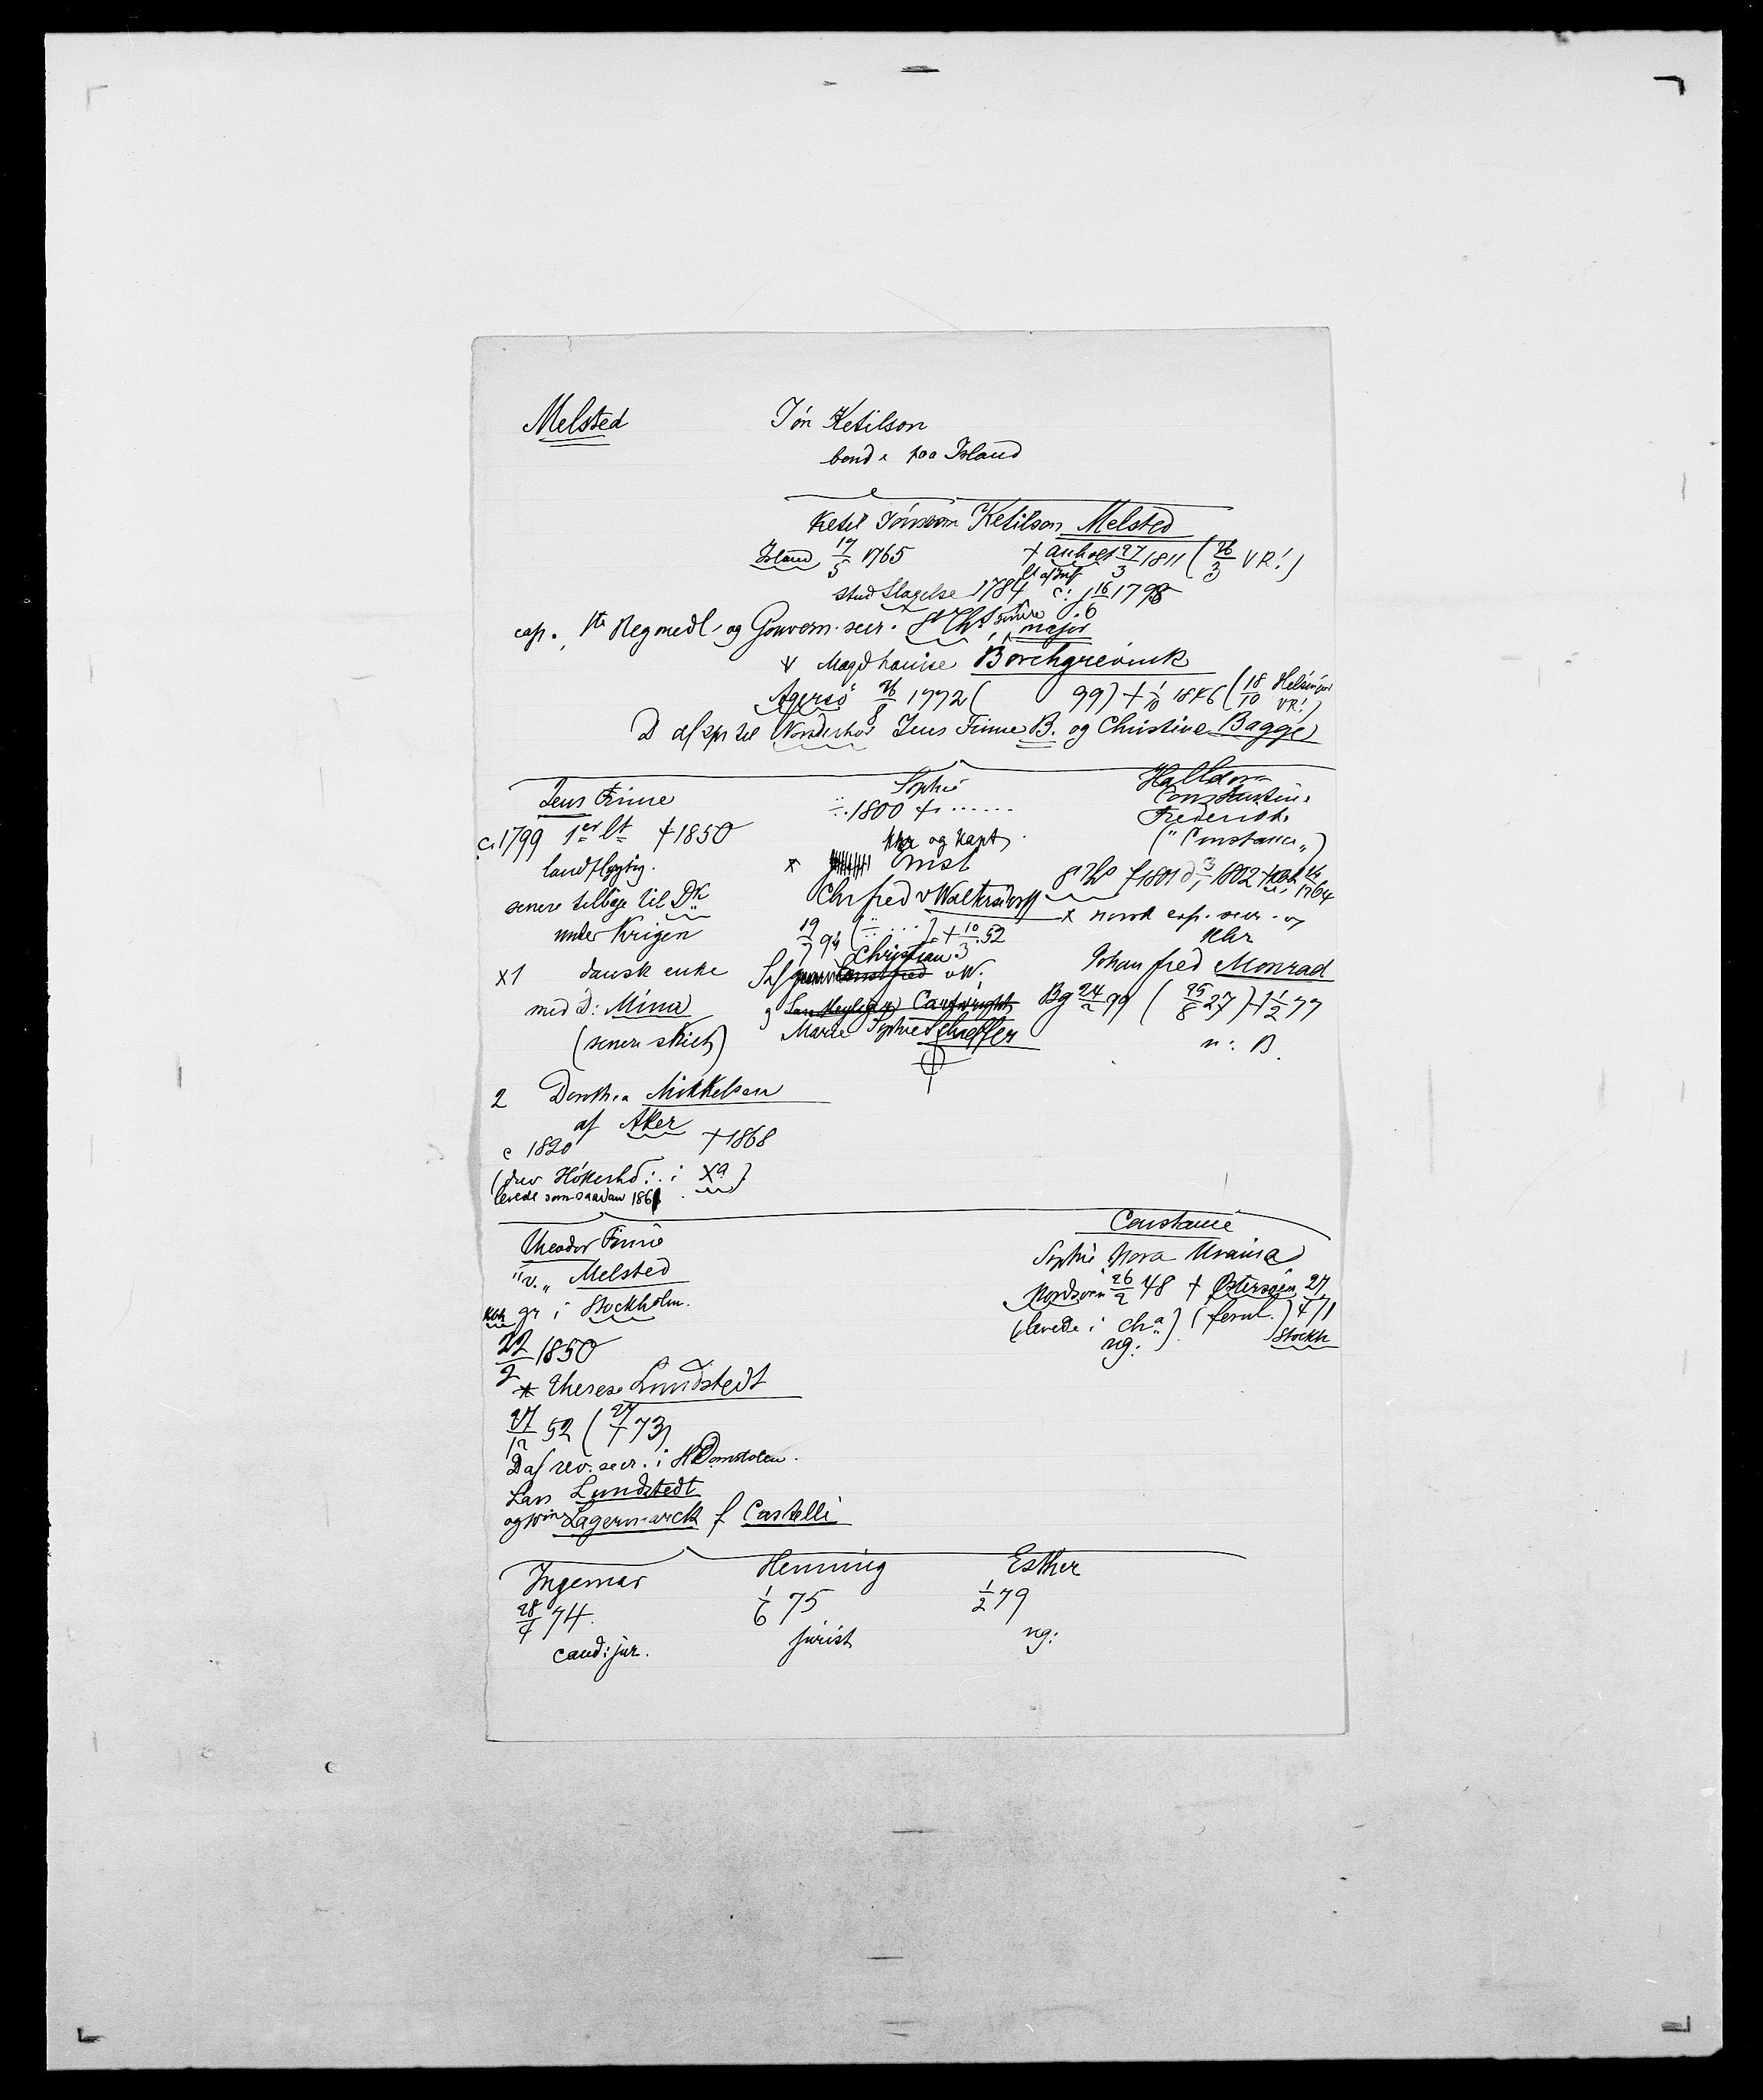 Melsted
Jón Ketilson
bonde paa Island
Ketil Jónsson Ketilson Melsted
Island 17/5 1765 † Anholt 27/3 1811 (26/3 VR!)
stud Slagelse 1784 16/6 1798
cap. Regmedl. og Gouvern. secr. St Ths senere major
Magd Louise Borchgrevink
Agersö 26/8 1772 ( 99) † 1/10 1846 (18/10 Helsingør VR!)
D af spr til Norderhov Jens Finne B. og Christine Bagge
Jens Finne
c. 1799 1er lt † 1850
landflygtig.
senere tilbage til Dk
under Krigen
x1 dansk enke
med D: Mina
(senere skilt)
2 Dorthea Mikkelsen
af Aker
c 1820 † 1868
(drev Hökerhd: i Xa)
levede som saadan 186
Sophie
1800 † ......
khr og Kapt
x
Chr fred v Walterstorff
19/7 94 (.....) † 10/3 52
Christian
v W.
og Cartwright
Marie Sophie Scheffer
Halldora
Constantine
Frederikke
("Constance")
1801 3/1 1802 † 1764
x norsk exp. secr. og
khr
Johan fred Monrad
Bg 24/2 99 (25/8 27) † 1/2 77
n: B.
Theodor Finne
"v." Melsted
Kbh gr i Stockholm.
22/2 1850
* Therese Lundstedt
27/12 52 (27/7 73)
D af rev. secr. i HDomstolen.
Lars Lundstedt
og Lagermarck f Castelli
Constance
Sophie Nora Urania
Nordsøen 26/2 48 † Østersøen 27/4 71
(levede i Cha) (fernl.)
ug: Stockh
Ingemar
28/4 74.
cand: jur.
Henning
1/6 75
jurist
Esther
1/2 79
ug: